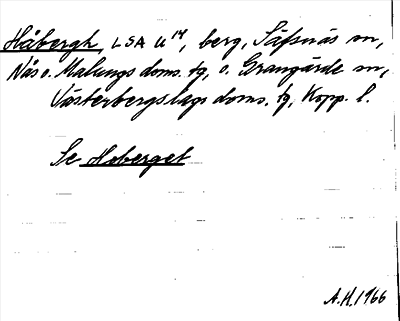 Håbergh, LSA U 14, berg, Säfsnäs sn,
Nås o. Malungs doms. tg, o. Grangärde sn,
Västerbergslags doms. tg, Kopp. l.
Se Hoberget
A.H. 1966